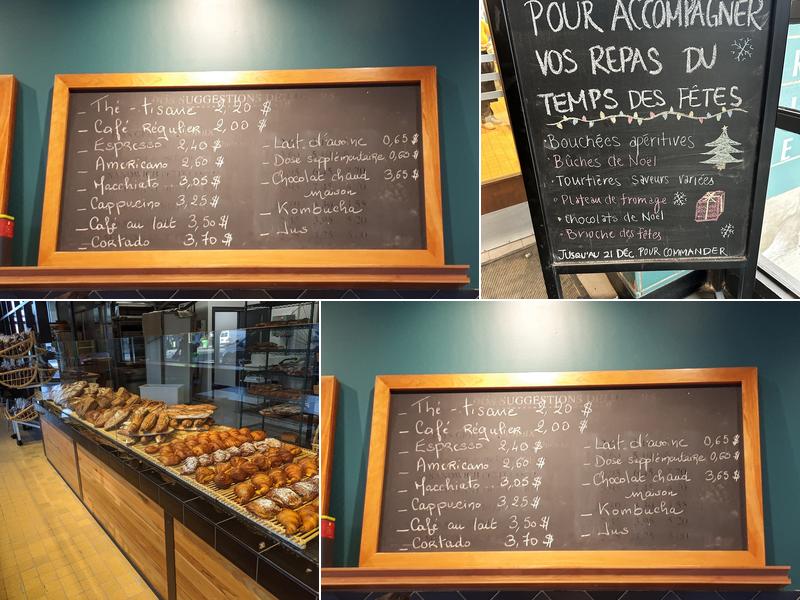 DOS SUGGESTIONS DE
_ Thé - tisane 2,20 $
_ Café Régulier 2,00 $
_ Espresso 2,40 $
_ Americano 2,60 $
_ Macchiato .. 3,05 $
_ Cappucino 3,25 $
_ Café au lait 3,50 $
_ Cortado 3,70 $
_ Lait d'avoine 0,65 $
_ Dose supplémentaire 0,60 $
_ Chocolat chaud 3,65 $
maison
_ Kombucha
_ Jus
POUR ACCOMPAGNER
VOS REPAS DU
TEMPS DES FÊTES
• Bouchées apéritives
• Bûches de Noël
• Tourtières saveurs variées
• Plateau de fromage
• Chocolats de Noël
• Brioche des fêtes
JUSQU'AU 21 DÉC POUR COMMANDER
SUGGESTIONS DE
_ Thé - tisane 2,20 $
_ Café Régulier 2,00 $
_ Espresso 2,40 $
_ Americano 2,60 $
_ Macchiato .. 3,05 $
_ Cappucino 3,25 $
_ Café au lait 3,50 $
_ Cortado 3,70 $
_ Lait d'avoine 0,65 $
_ Dose supplémentaire 0,60 $
_ Chocolat chaud 3,65 $
maison
_ Kombucha
_ Jus